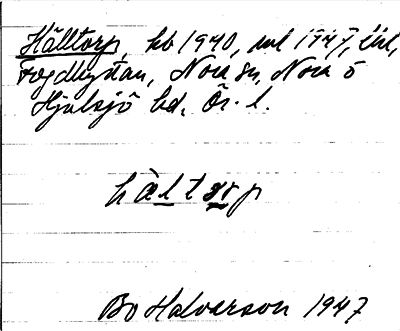 Hälltorp, hb 1940, ml 1947, lit,
Fogdhyttan, Nora sn, Nora o
Hjulsjö bd, Ör. l.
hältorp
Bo Halvarson 1947